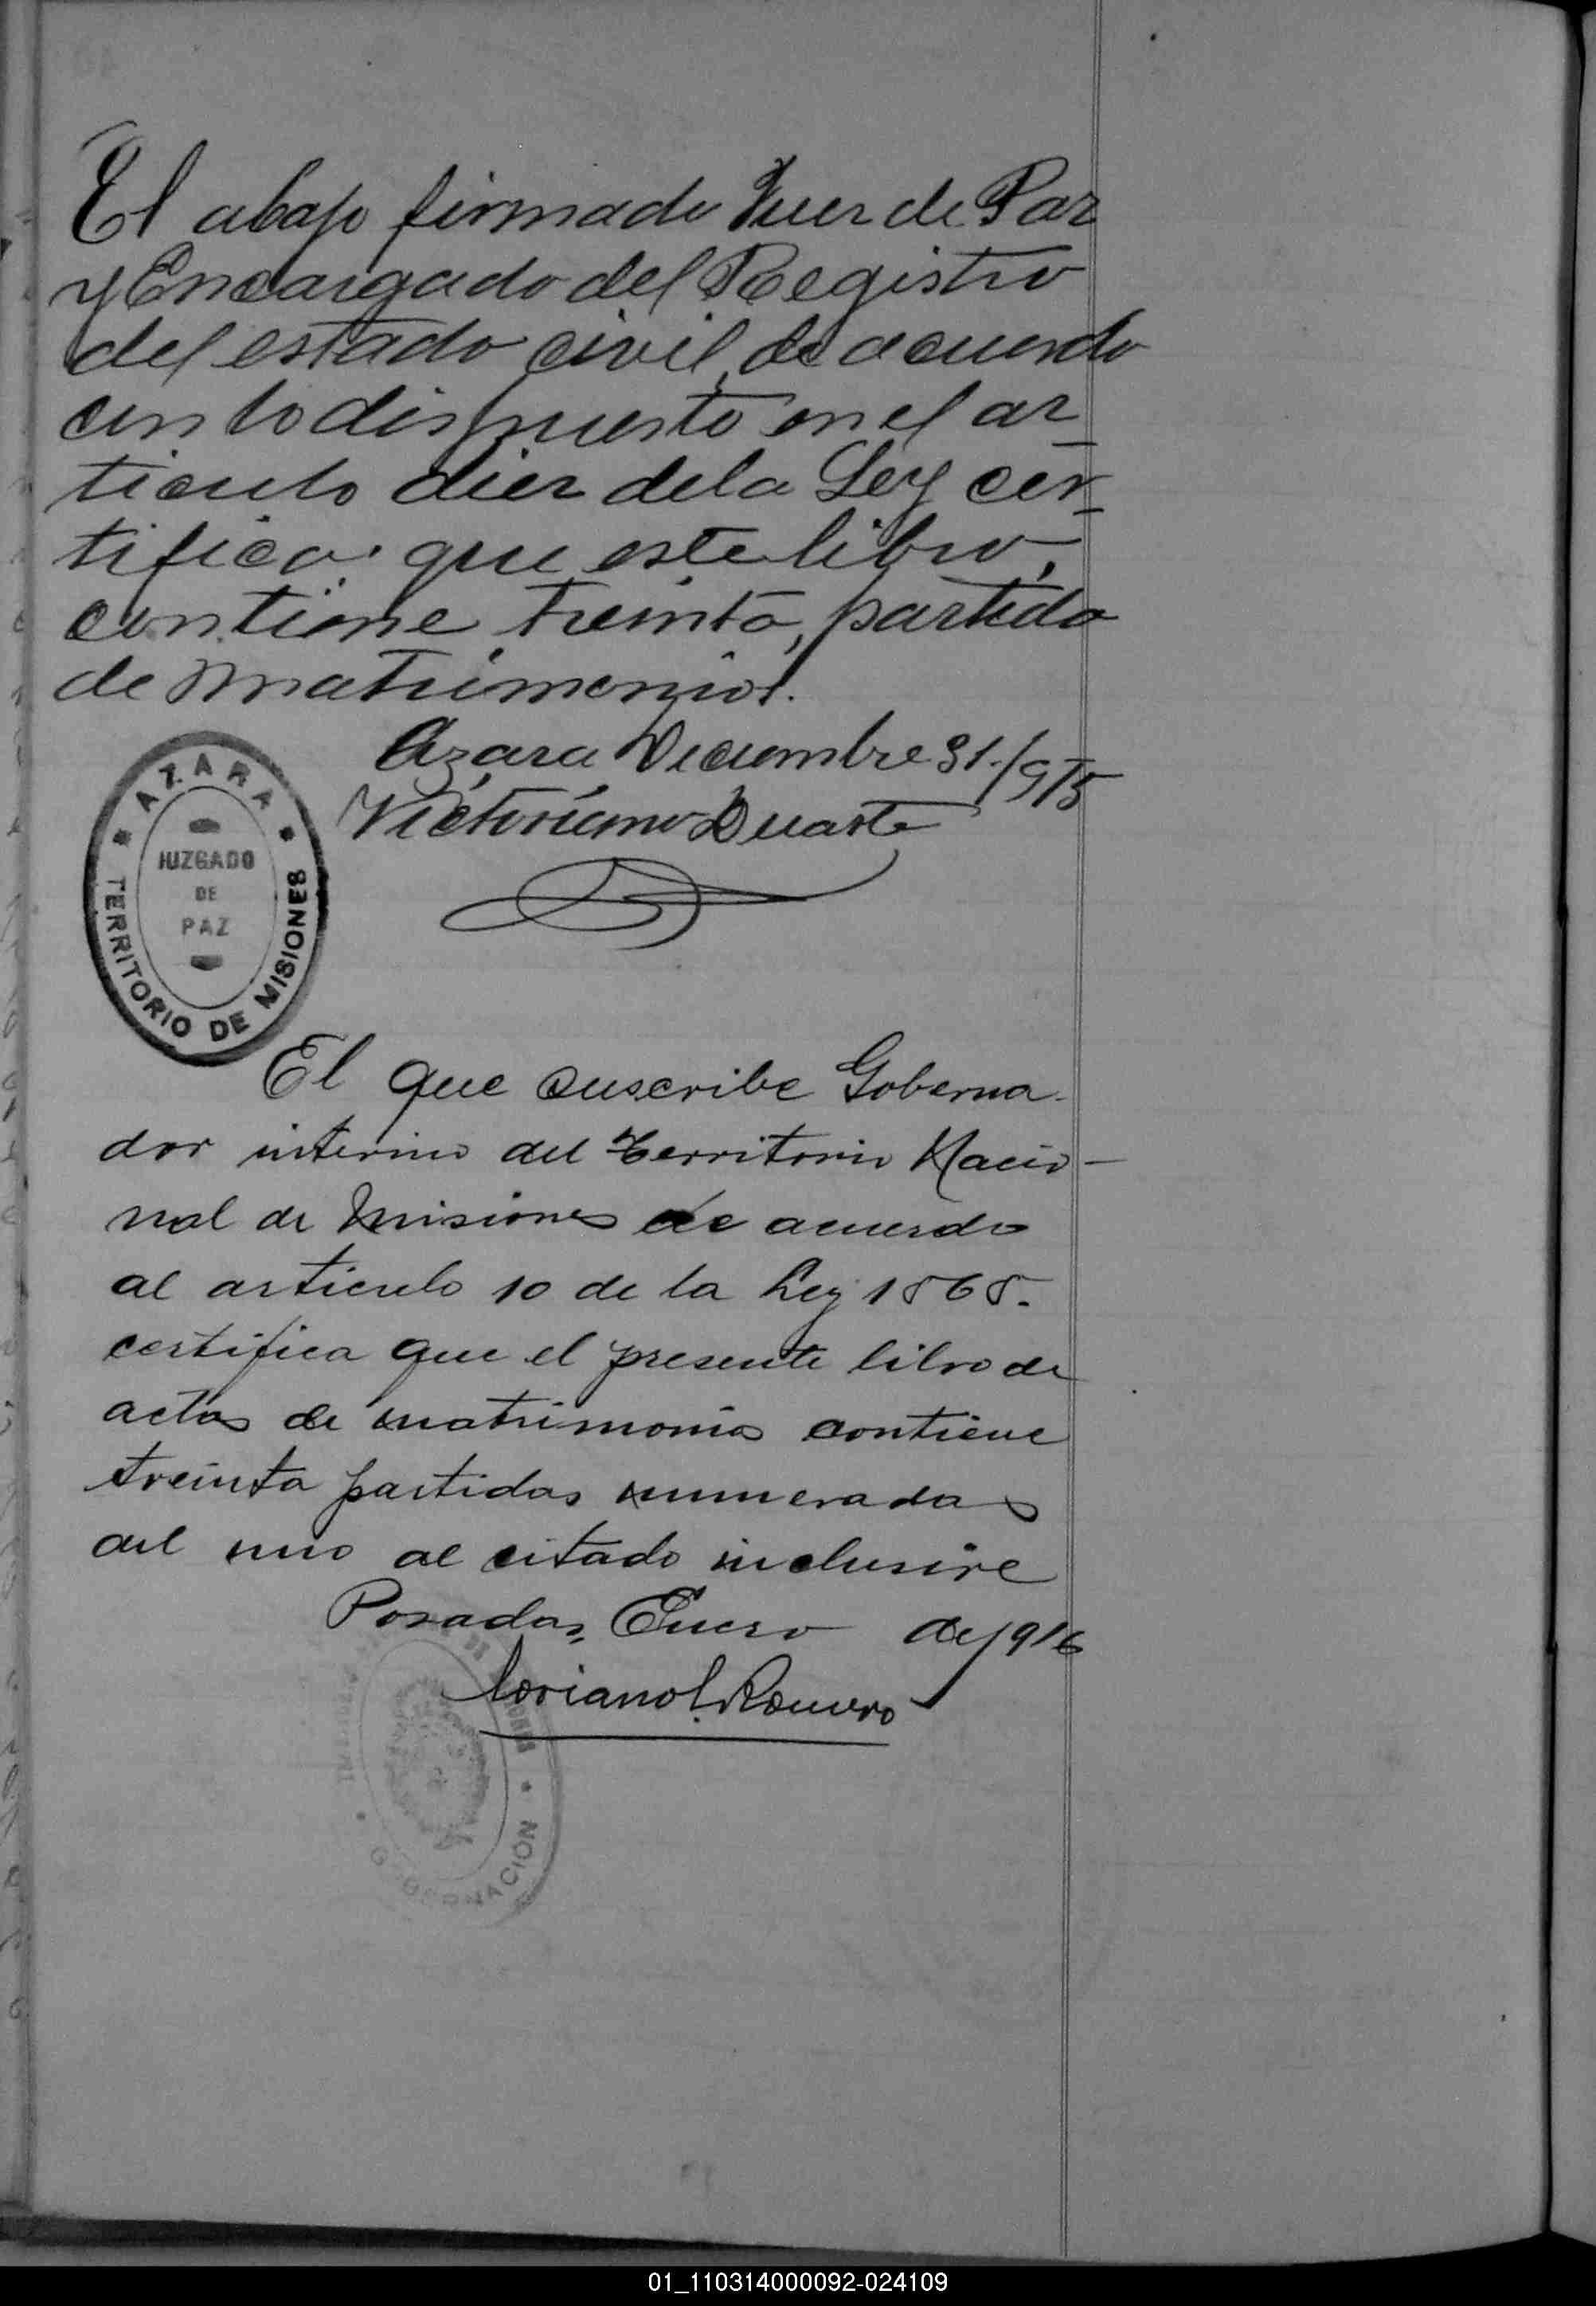 El abajo firmado Juez de Paz
y Encargado del Registro
del estado civil, de acuerdo
con lo dispuesto en el ar_
ticulo diez de la Ley cer_
tifica: que este libro,
contiene, treinta, partida
de matrimonios.
Azara Diciembre 31./915
Victoriano Duarte
AZARA
JUZGADO
DE
PAZ
TERRITORIO DE MISIONES
El que suscribe Goberna-
dor interino del Territorio Nacio-
nal de Misiones de acuerdo
al articulo 10 de la Ley 1565.
certifica que el presente libro de
actas de matrimonios contiene
treinta partidas numeradas
del uno al citado inclusive
Posadas, Enero de 1916
Romero
GOBERNACION
01_110314000092-024109